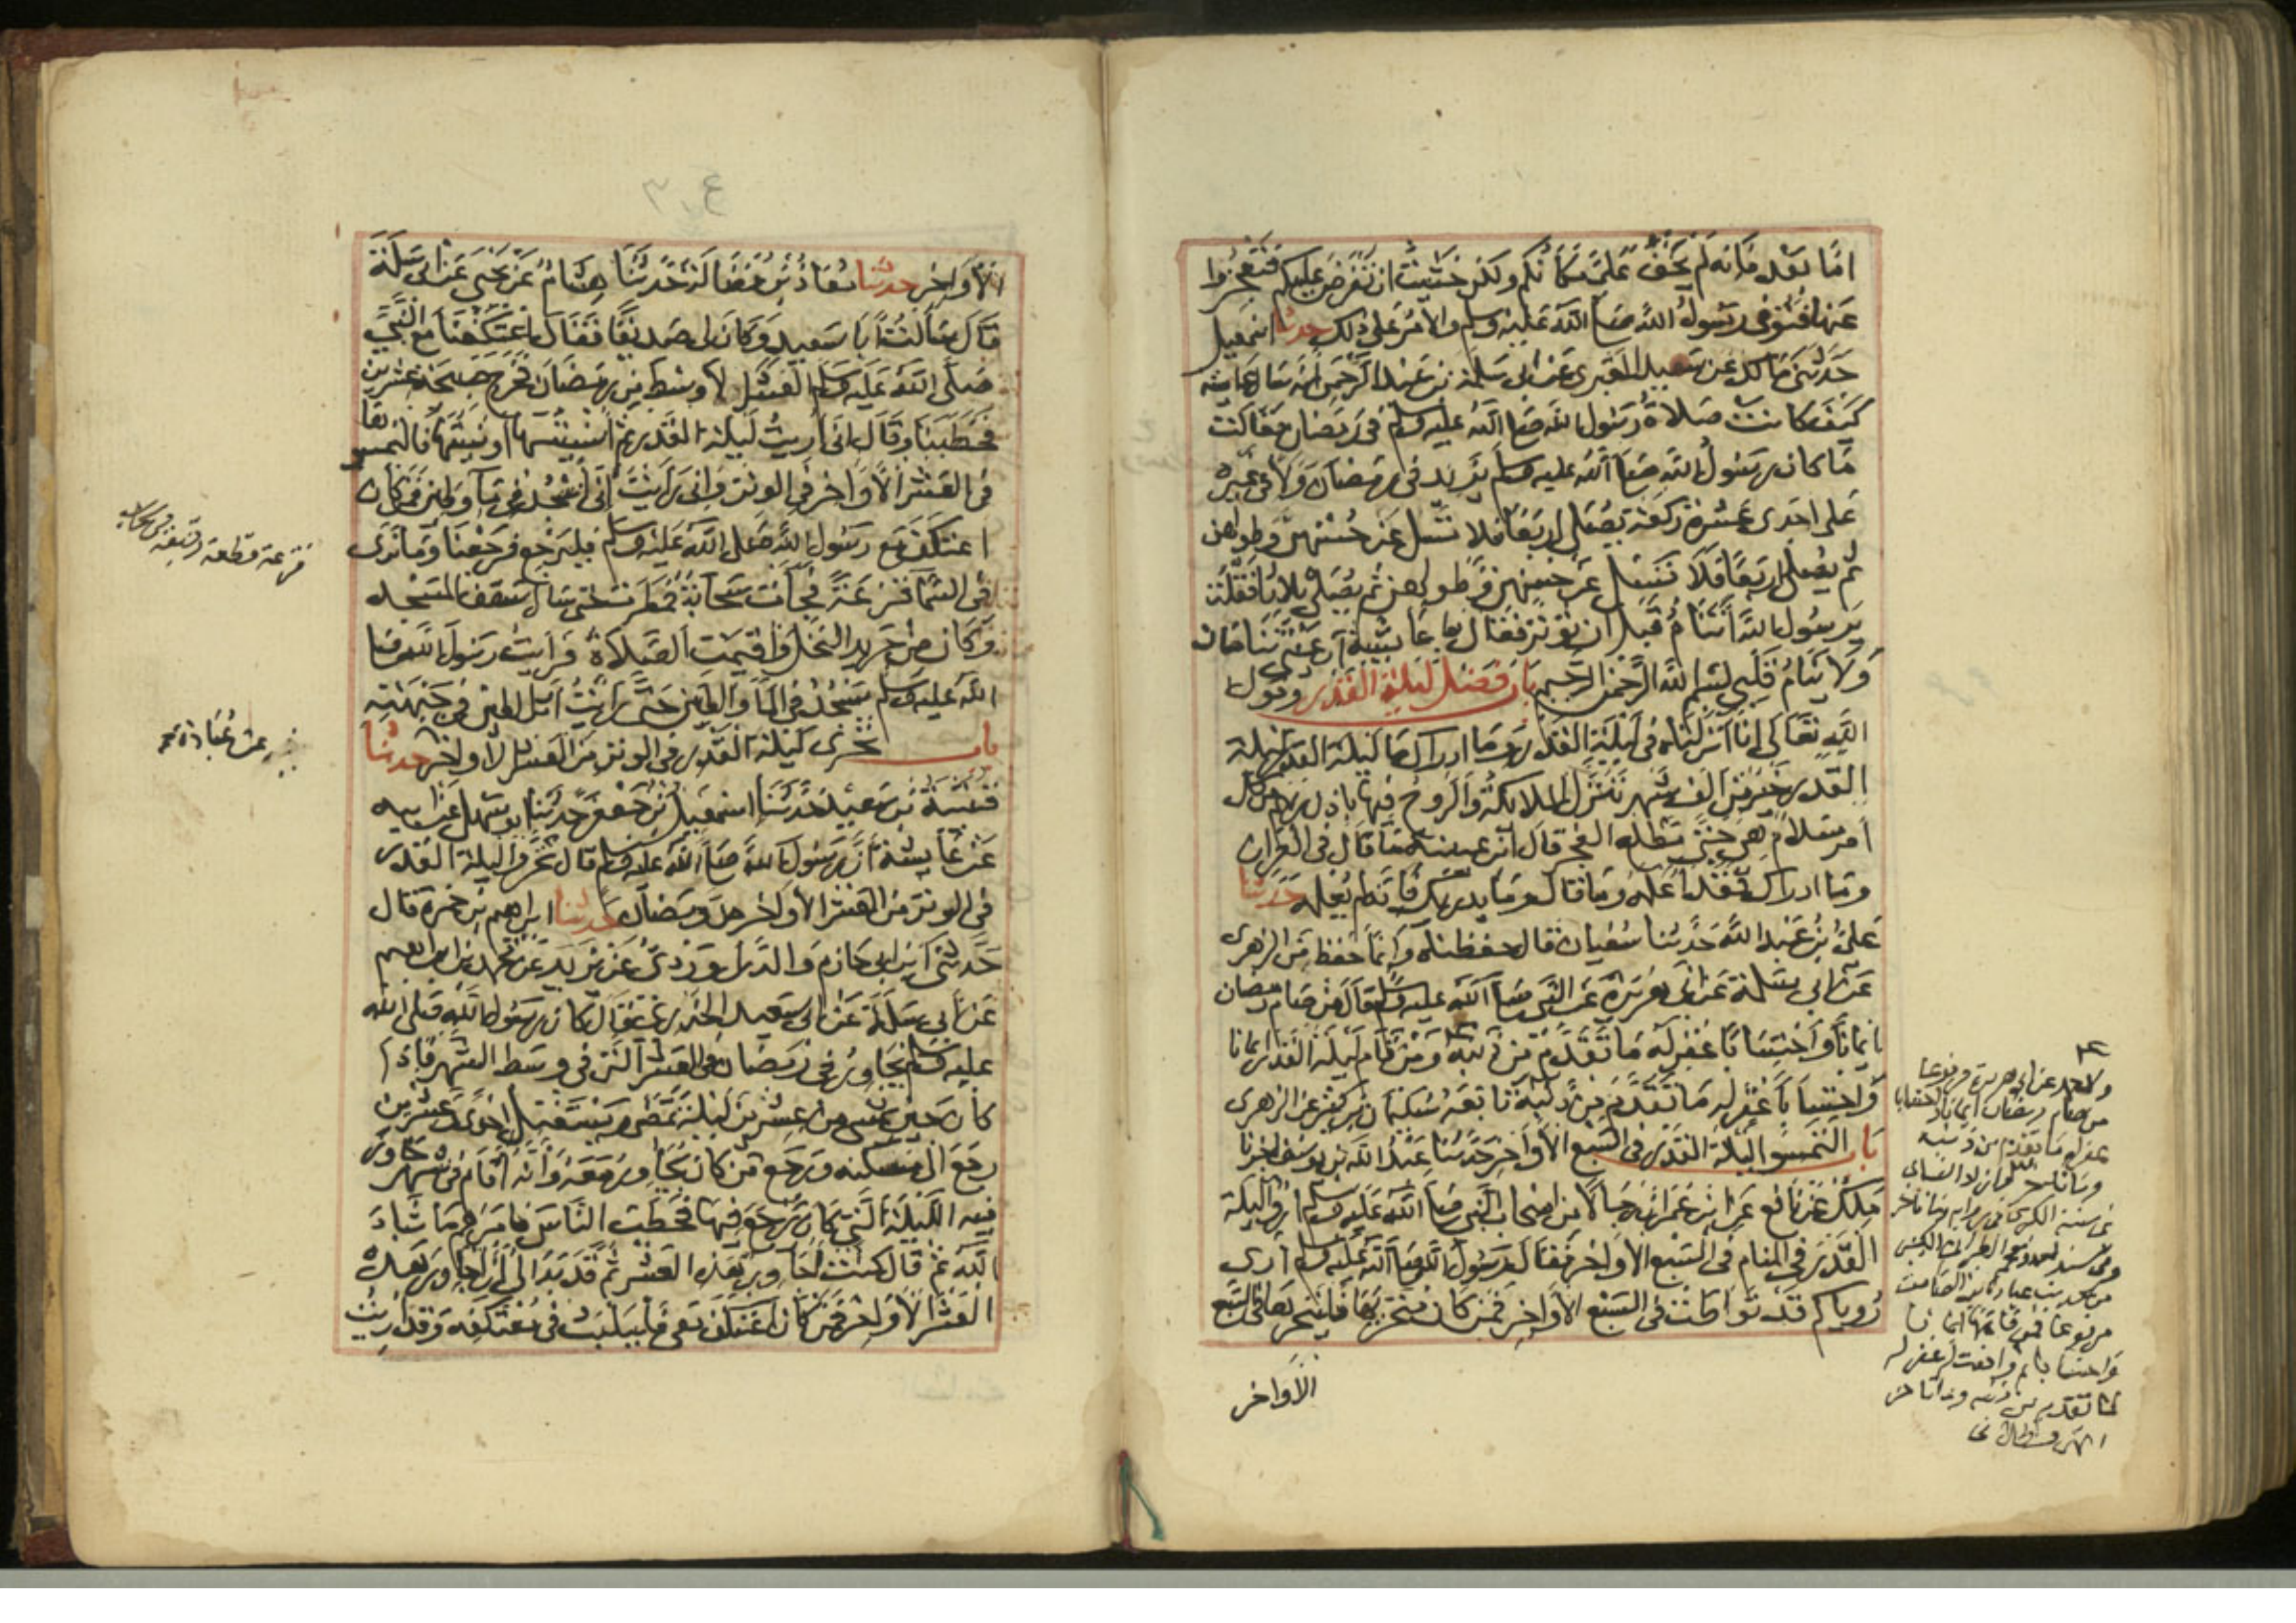 اما بعد فانه لم يخف علي مكانكم ولكن خشيت ان تفرض عليكم فتعجزوا
عنها فتوفي رسول الله صلى الله عليه وسلم والامر على ذلك حدثنا اسمعيل
حدثني مالك عن سعيد المقبري عن ابي سلمة بن عبد الرحمن انه سال عايشة
كيف كانت صلاة رسول الله صلى الله عليه وسلم في رمضان فقالت
ما كان رسول الله صلى الله عليه وسلم يزيد في رمضان ولا في غيره
على احدى عشرة ركعة يصلي اربعا فلا تسل عن حسنهن وطولهن
ثم يصلي اربعا فلا تسل عن حسنهن وطولهن ثم يصلي ثلاثا فقلت
يرسول الله اتنام قبل ان توتر فقال يا عايشة ان عيني تنامان
ولا ينام قلبي بسم الله الرحمن الرحيم باب فضل ليلة القدر وقول
الله تعالى انا انزلناه في ليلة القدر وما ادراك ما ليلة القدر ليلة
القدر خير من الف شهر تنزل الملايكة والروح فيها باذن ربهم من كل
امر سلام هي حتى مطلع الفجر قال ابن عيينة ما قال في القران
وما ادراك فقد اعلمه وما قال وما يدريك فانه لم يعلمه حدثنا
علي بن عبد الله حدثنا سفيان قال حفظناه وانما حفظ من الزهري
عن ابي سلمة عن ابي هريرة عن النبي صلى الله عليه وسلم قال من صام رمضان
ايمانا واحتسابا غفر له ما تقدم من ذنبه ومن قام ليلة القدر ايمانا
واحتسابا غفر له ما تقدم من ذنبه تابعه سليمان بن كثير عن الزهري
باب التمسوا ليلة القدر في السبع الاواخر حدثنا عبد الله بن يوسف اخبرنا
ملك عن نافع عن ابن عمر ان رجالا من اصحاب النبي صلى الله عليه وسلم اروا ليلة
القدر في المنام في السبع الاواخر فقال رسول الله صلى الله عليه وسلم ارى
روياكم قد تواطات في السبع الاواخر فمن كان متحريها فليتحرها في السبع
الاواخر
من صام رمضان ايمانا واحتسابا
غفر له ما تقدم من ذنبه
من حديث عبادة بن الصامت
مرفوعا فمن قامها ايمانا
واحتسابا ثم وقعت له غفر له
ما تقدم من ذنبه وما تاخر
الاواخر حدثنا معاذ بن فضالة حدثنا هشام عن يحيى عن ابي سلمة
قال سالت ابا سعيد وكان لي صديقا فقال اعتكفنا مع النبي
صلى الله عليه وسلم العشر الاوسط من رمضان فخرج صبيحة عشرين
فخطبنا وقال اني اريت ليلة القدر ثم انسيتها او نسيتها فالتمسوها
في العشر الاواخر في الوتر واني رايت اني اسجد في ماء وطين فمن كان
اعتكف مع رسول الله صلى الله عليه وسلم فليرجع فرجعنا وما نرى
في السما قزعة فجات سحابة فمطرت حتى سال سقف المسجد
وكان من جريد النخل واقيمت الصلاة فرايت رسول الله صلى
الله عليه وسلم يسجد في الما والطين حتى رايت اثر الطين في جبهته
باب تحري ليلة القدر في الوتر من العشر الاواخر حدثنا
قتيبة بن سعيد حدثنا اسمعيل بن جعفر حدثنا ابو سهيل عن ابيه
عن عايشة ان رسول الله صلى الله عليه وسلم قال تحروا ليلة القدر
في الوتر من العشر الاواخر من رمضان حدثنا ابراهيم بن حمزة قال
حدثني ابن ابي حازم والدراوردي عن يزيد عن محمد بن ابراهيم
عن ابي سلمة عن ابي سعيد الخدري قال كان رسول الله صلى الله
عليه وسلم يجاور في رمضان العشر التي في وسط الشهر فاذا
كان حين يمسي من عشرين ليلة تمضي ويستقبل احدى وعشرين
رجع الى مسكنه ورجع من كان يجاور معه وانه اقام في شهر جاور
فيه الليلة التي كان يرجع فيها فخطب الناس فامرهم ما شاء
الله ثم قال كنت اجاور هذه العشر ثم قد بدا لي ان اجاور هذه
العشر الاواخر فمن كان اعتكف معي فليثبت في معتكفه وقد اريت
قزعة قطعة رقيقة من سحاب
عن عبادة